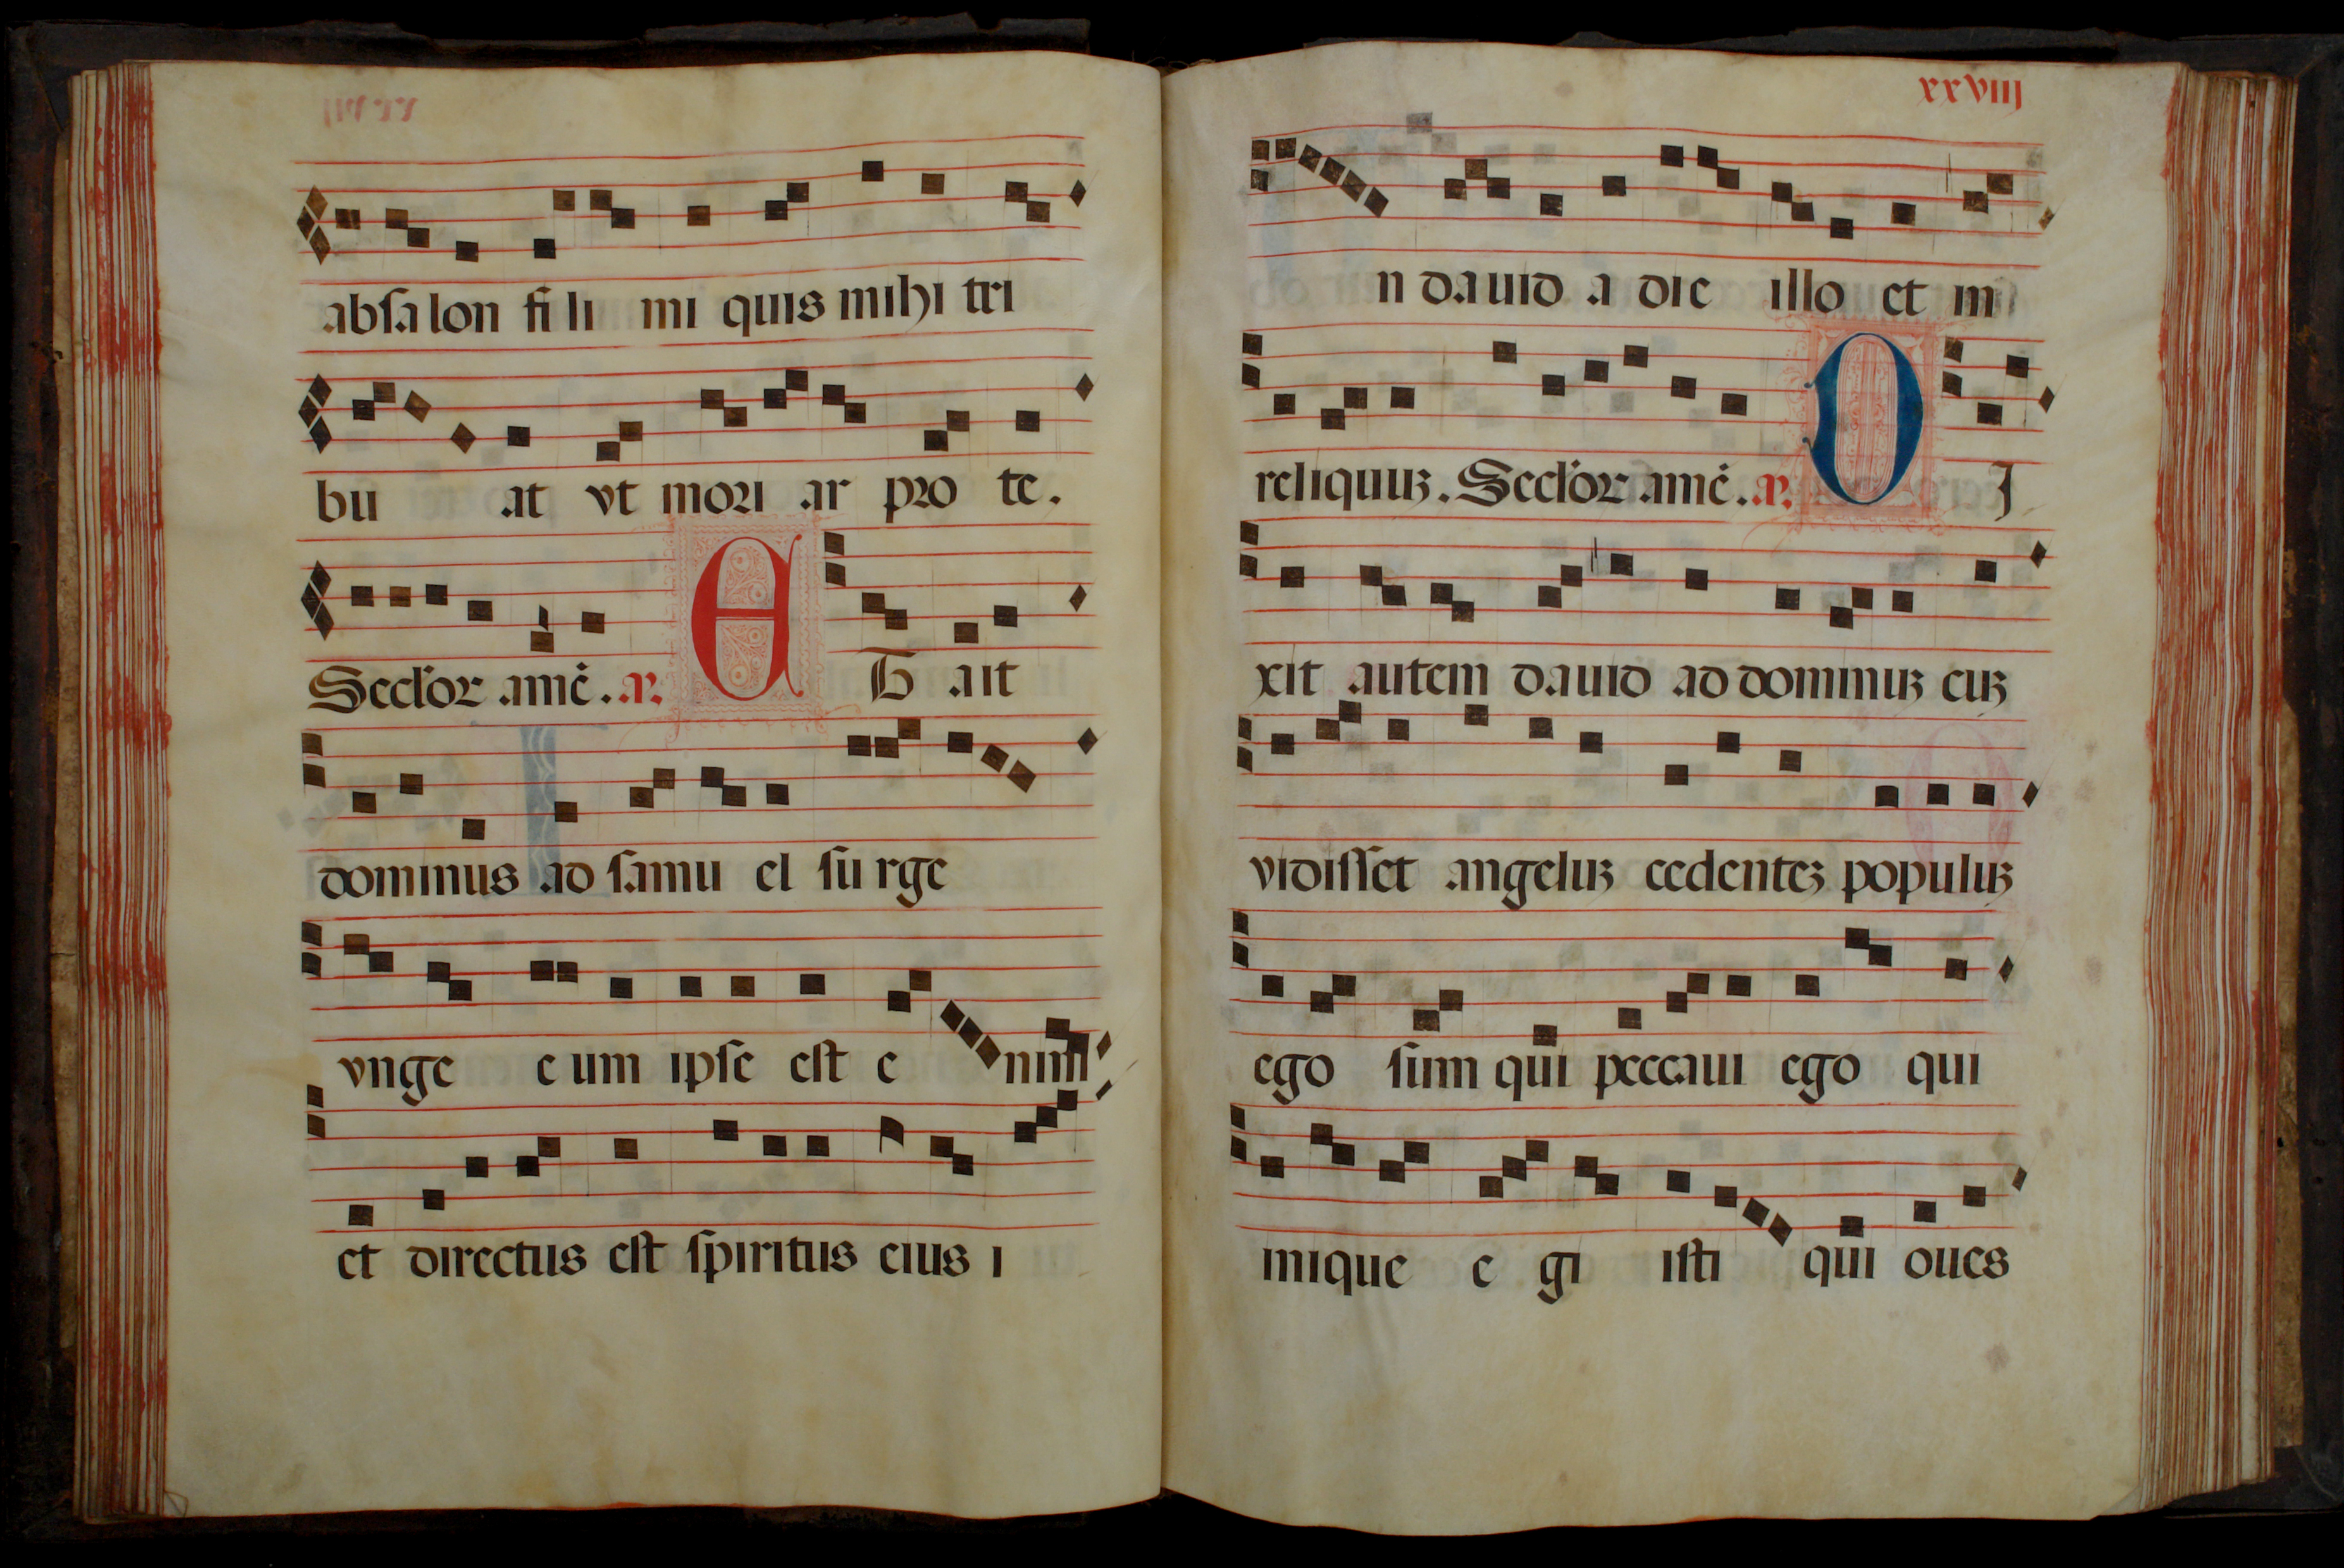 absalon fi li mi quis mihi tri
bu at vt mori ar pro te.
Secl'or amē. ꝶ. E T ait
dominus ad samu el su rge
vnge e um ipse est e nim
et directus est spiritus eius i
xxviij
n dauid a die illo et in
reliquuꝫ. Secl'or amē. ꝶ. O J
xit autem dauid ad dominuꝫ cuꝫ
vidisset angeluꝫ cedenteꝫ populuꝫ
ego sum qui peccaui ego qui
inique e gi isti qui oues